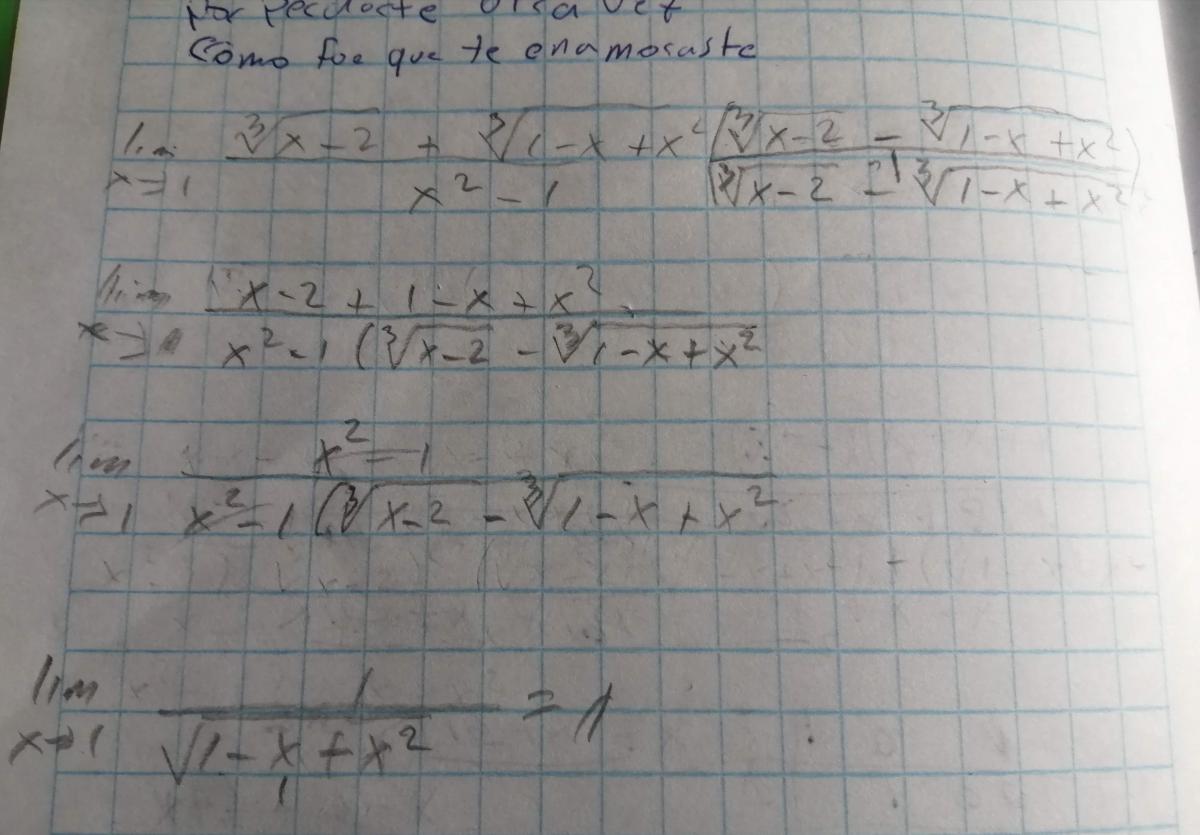 por perderte otra vez
Cómo fue que te enamoraste
lim x→1 ∛(x-2) + ∛(1-x+x²) / x²-1 (∛(x-2) - ∛(1-x+x²)) / (∛(x-2) - ∛(1-x+x²))
lim x→1 x-2+1-x+x² / x²-1 (∛(x-2) - ∛(1-x+x²)
lim x→1 x²-1 / x²-1 (∛(x-2) - ∛(1-x+x²)
lim x→1 1 / √(1-x+x²) = 1
1